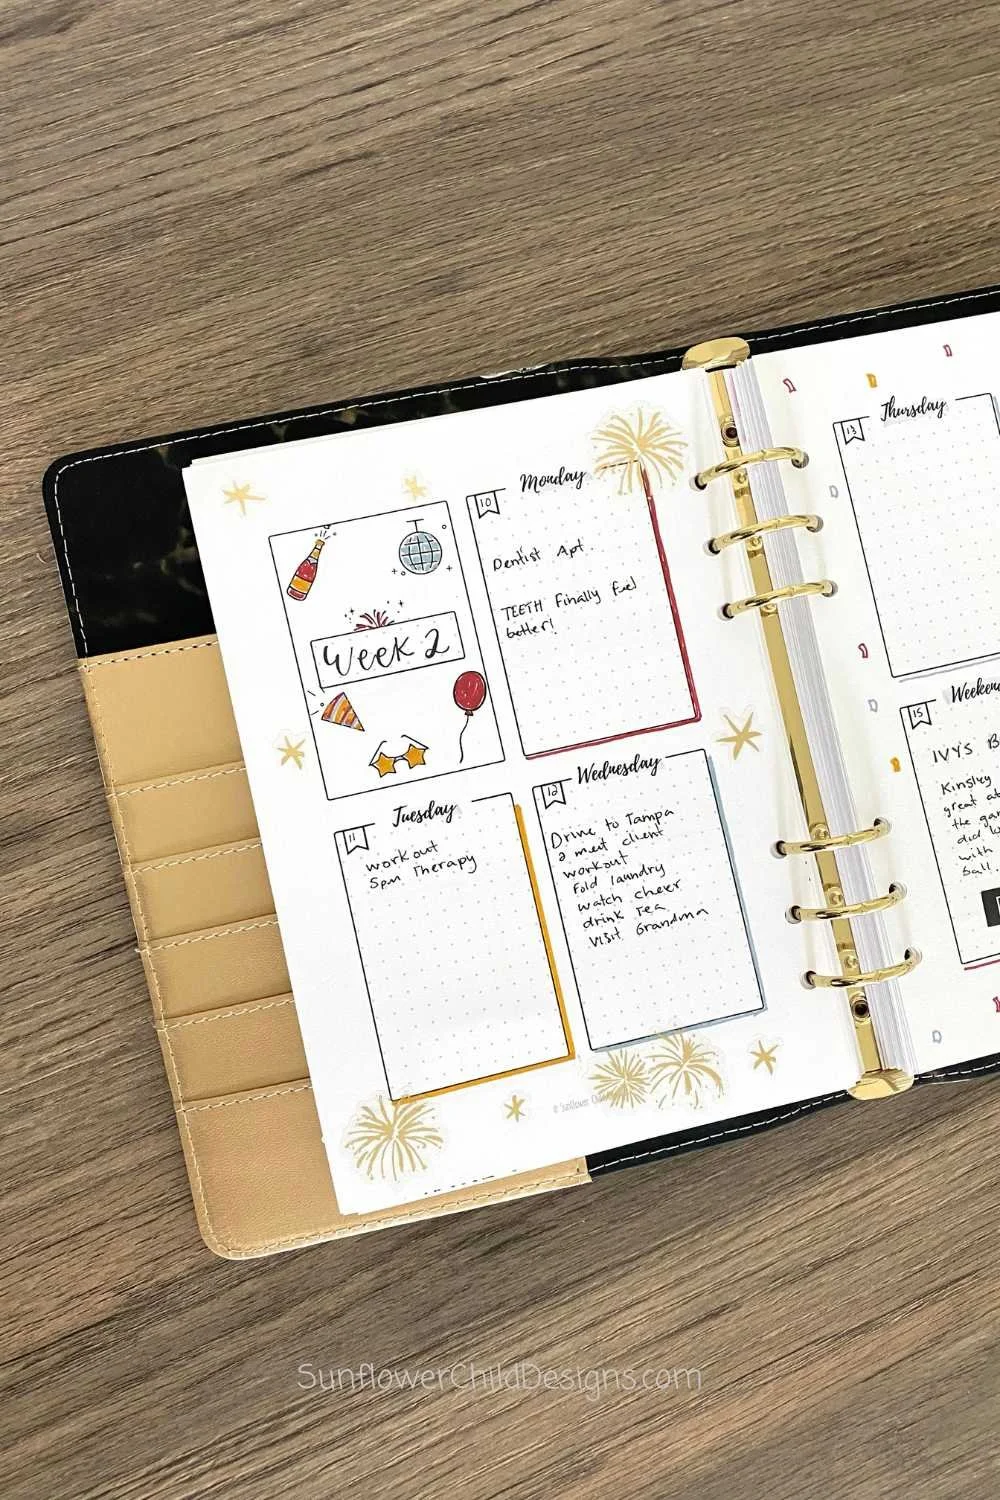 Week 2
Monday
10
Dentist Apt.
TEETH Finally fuel
better!
Tuesday
11
workout
5pm Therapy
Wednesday
12
Drive to Tampa
2 meet client
workout
Fold laundry
watch cheer
drink Tea
Visit Grandma
© Sunflower
Thursday
13
15
IVYS
Kinsley
great
the
did
with
ball.
SunflowerChildDesigns.com